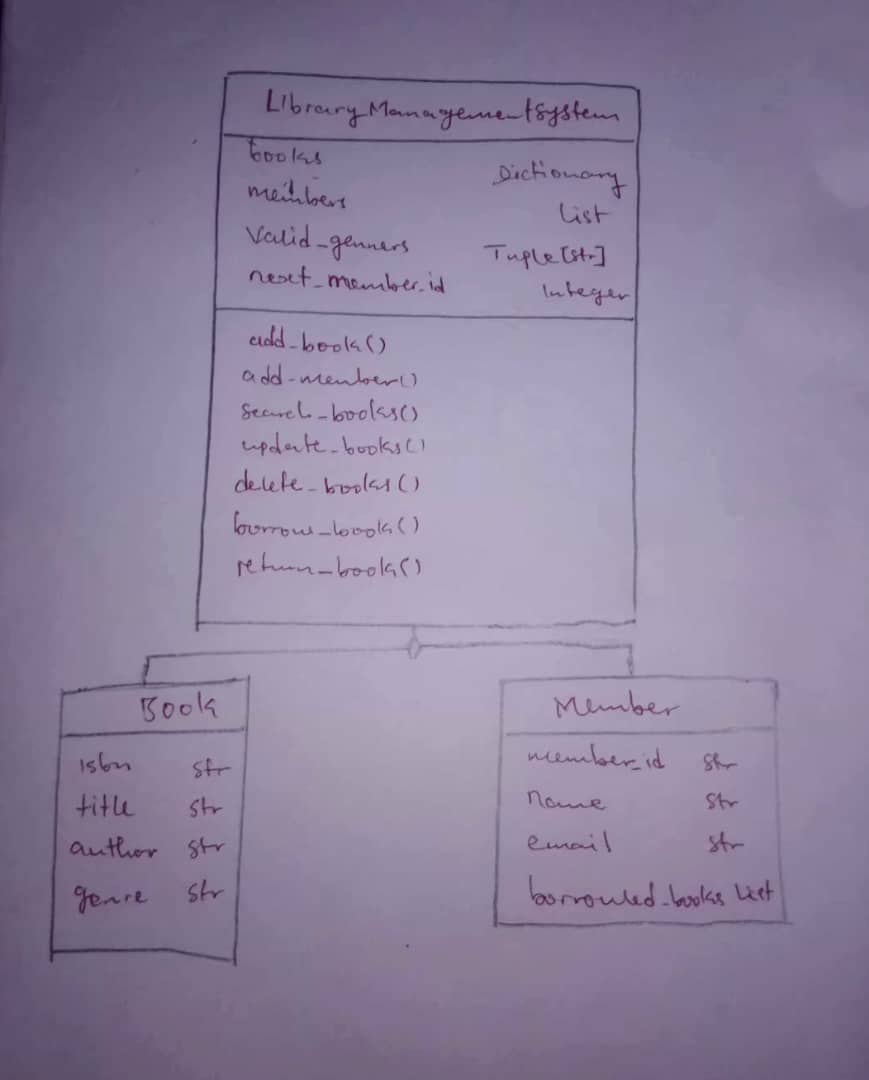 Library_ManagementSystem
books Dictionary
members List
Valid_genners Tuple[str]
next_member_id Integer
add_book()
add-member()
search_books()
update_books()
delete_books()
borrow_book()
return_book()
Book
isbn str
title str
author str
genre str
Member
member_id str
name str
email str
borrowled_books List